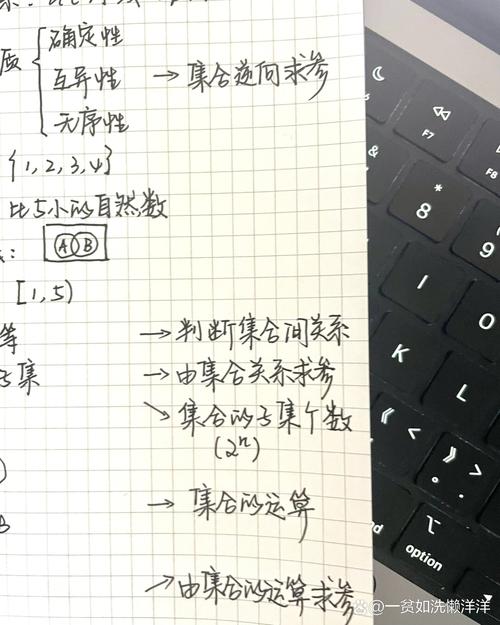 质
确定性
互异性 → 集合逆向求参
无序性
{1,2,3,4}
比5小的自然数
:
A B
[1,5)
等 → 判断集合间关系
子集 → 由集合关系求参
↘ 集合的子集个数
(2ⁿ)
)
→ 集合的运算
B
→ 由集合的运算求参
F7
F8
&
*
8
9
I
O
K
L
《 <
。 .
》 >
option
@一贫如洗懒洋洋